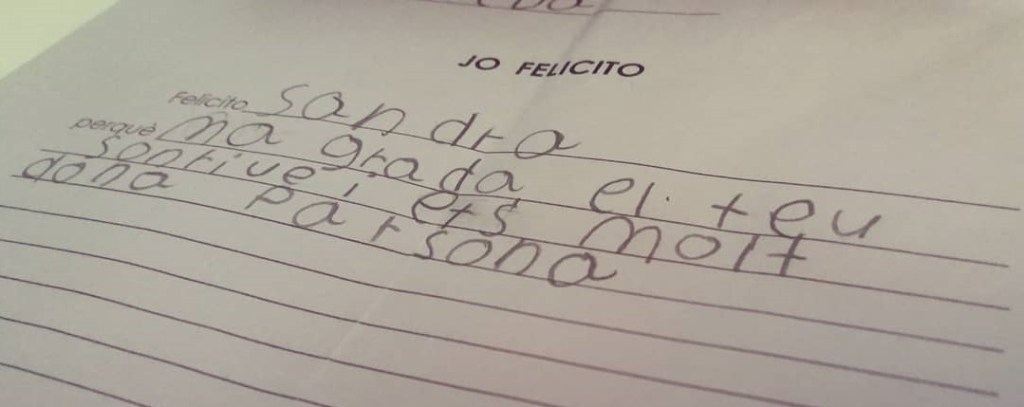 JO FELICITO
Felicito sandra
perquè ma grada el teu
sonriue i ets molt
dona parsona